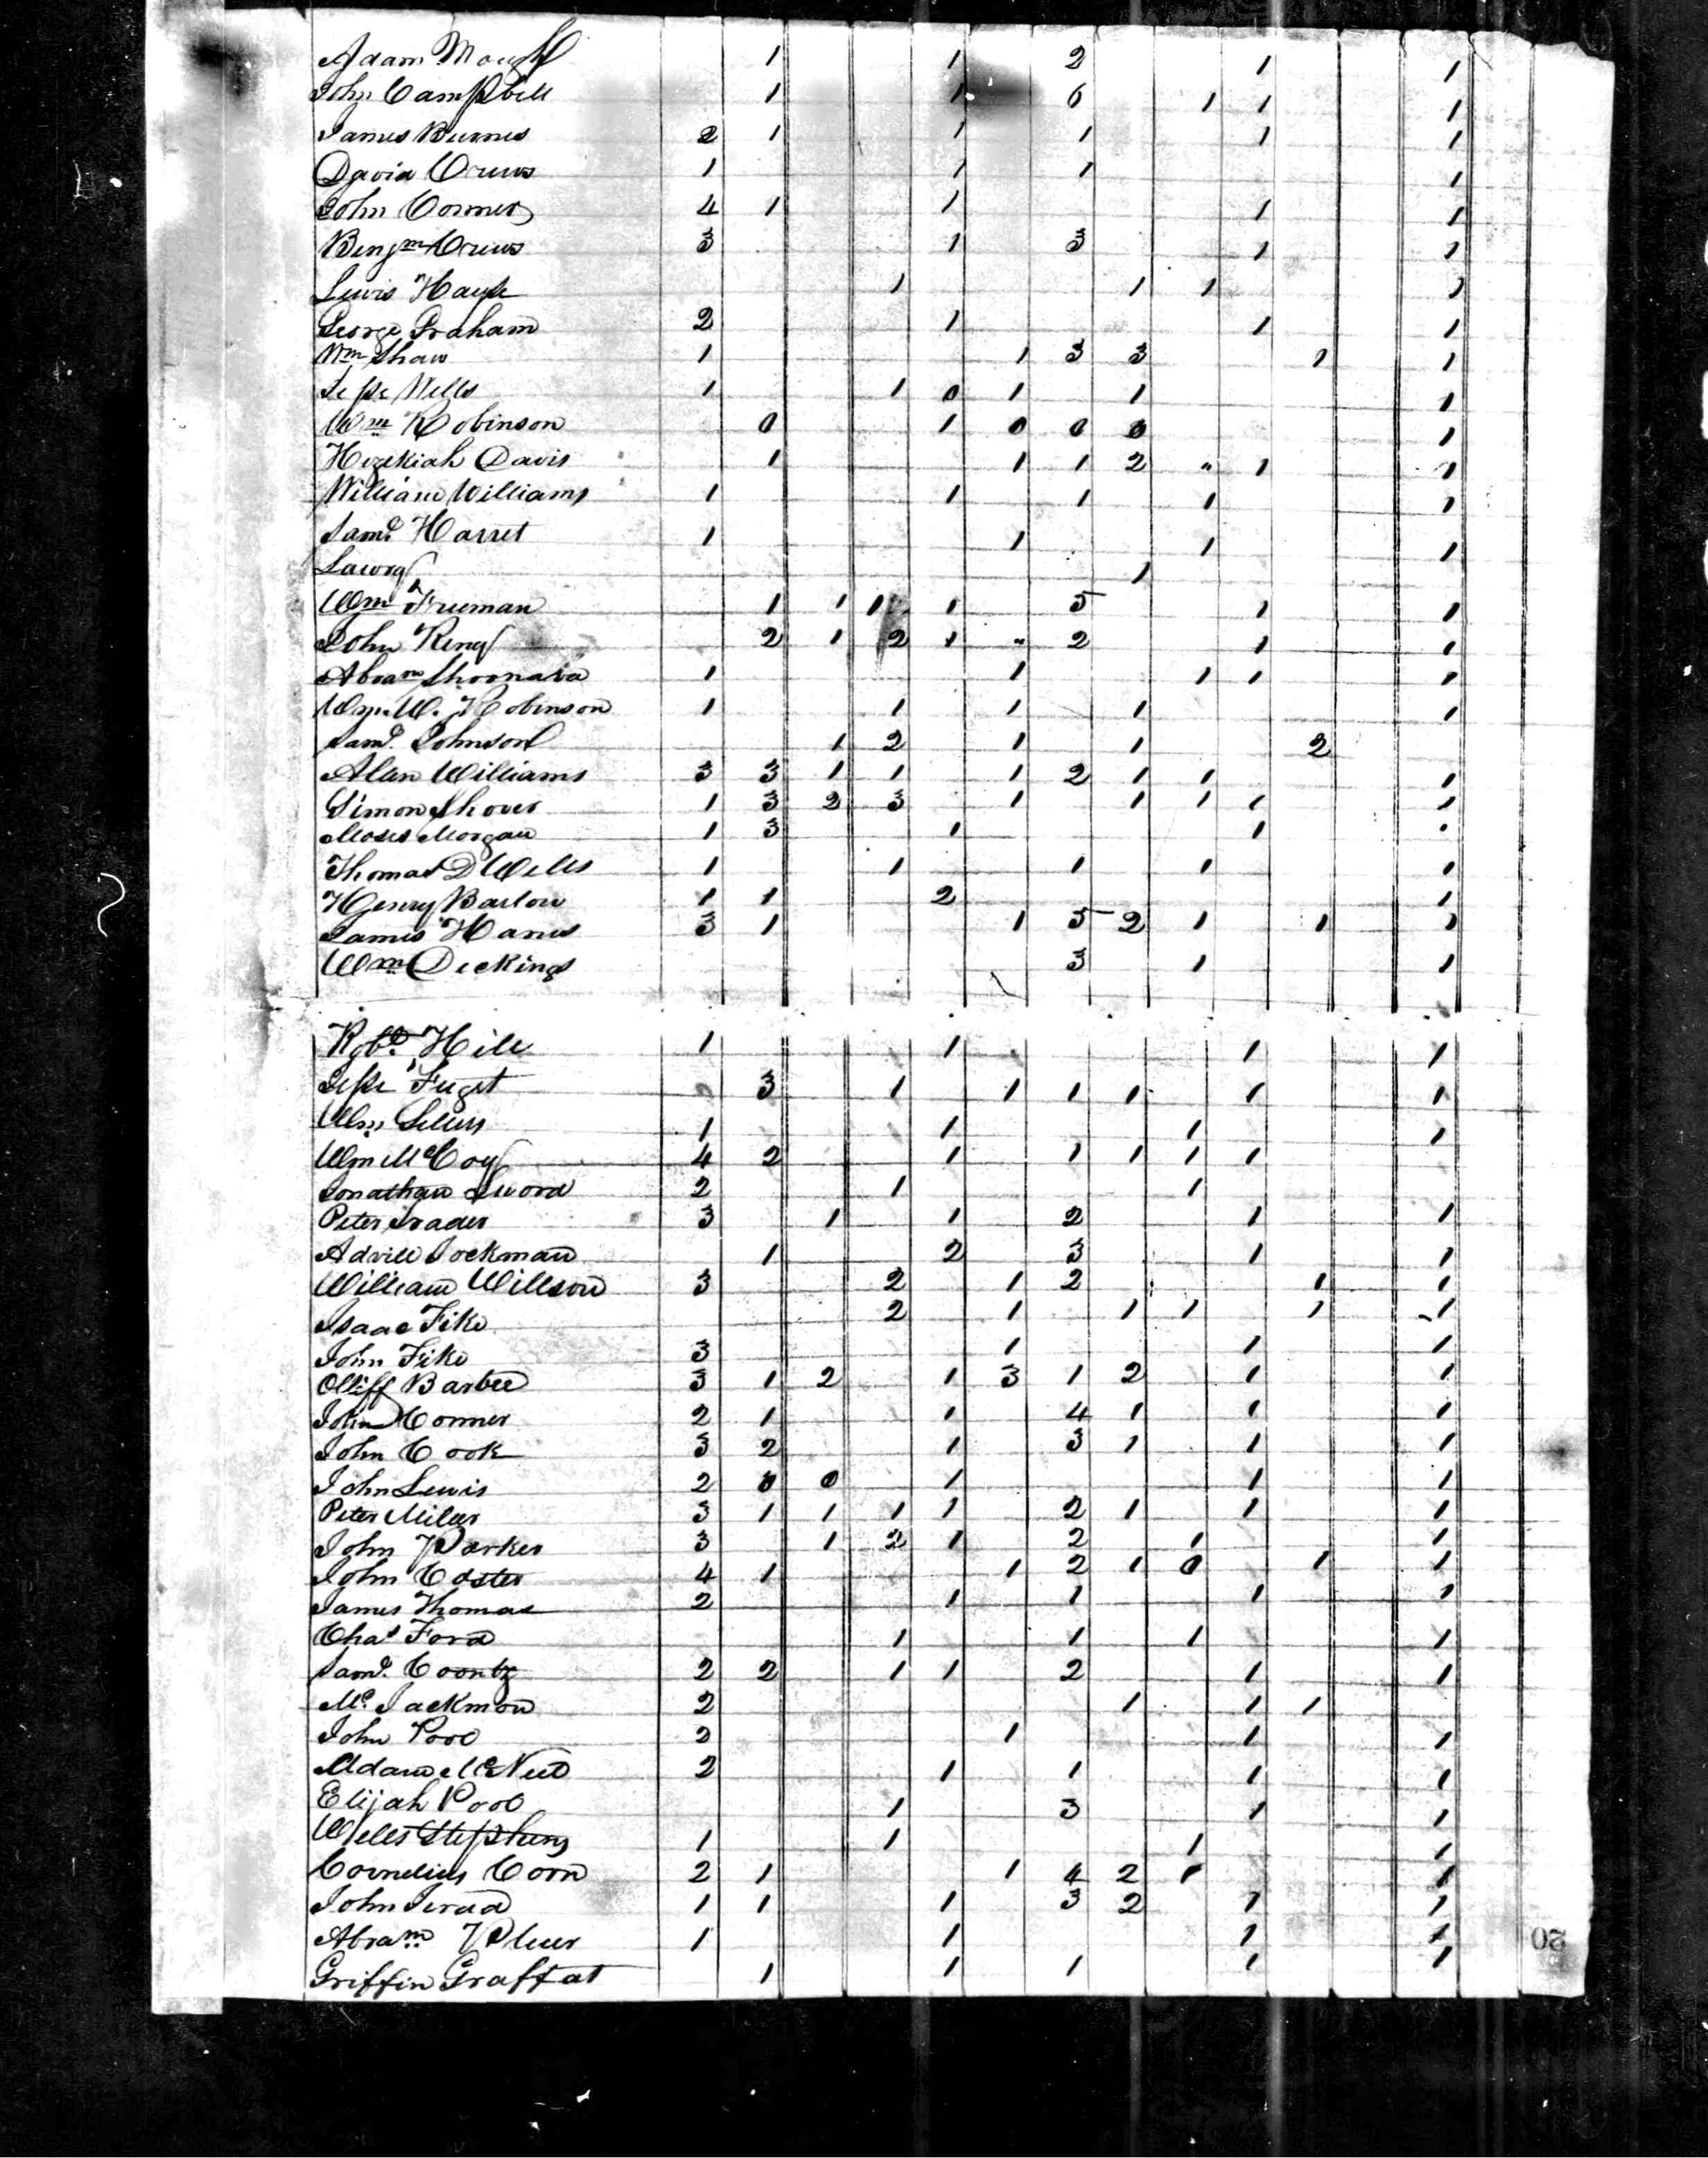 Adam 1 1 2 1 1
John Campbell 1 1 6 1 1 1
James Burnes 2 1 1 1 1 1
David Crews 1 1 1 1
John Conner 4 1 1 1 1
Benjm Crews 3 1 3 1 1
Lewis Hayse 1 1 1 1
George Graham 2 1 1 1
Wm Shaw 1 1 3 3 1 1
Jesse Wells 1 1 0 1 1 1
Wm Robinson 0 1 0 0 0 1
Hezekiah Davis 1 1 1 2 " 1 1
William Williams 1 1 1 1 1
Saml Harret 1 1 1 1
1
Wm Freeman 1 1 1 1 5 1 1
John King 2 1 2 1 " 2 1 1
Abram 1 1 1 1 1
Wm. W. Robinson 1 1 1 1 1
Saml. Johnson 1 2 1 1 2
Allen Williams 3 3 1 1 1 2 1 1 1
Simon Shover 1 3 2 3 1 1 1 1 1
Moses Morgan 1 3 1 1 1
Thomas D Wells 1 1 1 1 1
Henry Barlow 1 1 2 1
James Hanes 3 1 1 5 2 1 1 1
Wm Deckings 3 1 1
Robt. Hill 1 1 1 1
Jesse Fuget 3 1 1 1 1 1 1
Wm Sellers 1 1 1 1
Wm McCoy 4 2 1 1 1 1 1
Jonathan Sword 2 1 1
Peter Trader 3 1 1 2 1 1
Adrill Jackman 1 2 3 1 1
William Willson 3 2 1 2 1 1
Isaac Fike 2 1 1 1 1 1
John Fike 3 1 1 1
Olliff Barbee 3 1 2 1 3 1 2 1 1
John Conner 2 1 1 4 1 1 1
John Cook 3 2 1 3 1 1 1
John Lewis 2 0 0 1 1 1
Peter Miller 3 1 1 1 1 2 1 1 1
John Parker 3 1 2 1 2 1 1
John Coster 4 1 1 2 1 0 1 1
James Thomas 2 1 1 1 1
Chas Ford 1 1 1 1
Saml. Coontz 2 2 1 1 2 1 1
Mc. Jackmon 2 1 1 1
John Pool 2 1 1 1
Adam McNeet 2 1 1 1 1
Elijah Pool 1 3 1 1
Wells Stephens 1 1 1 1
Cornelius Corn 2 1 1 4 2 1 1
John 1 1 1 3 2 1 1
Abram 1 1 1 1
Griffin Graffat 1 1 1 1 1
20